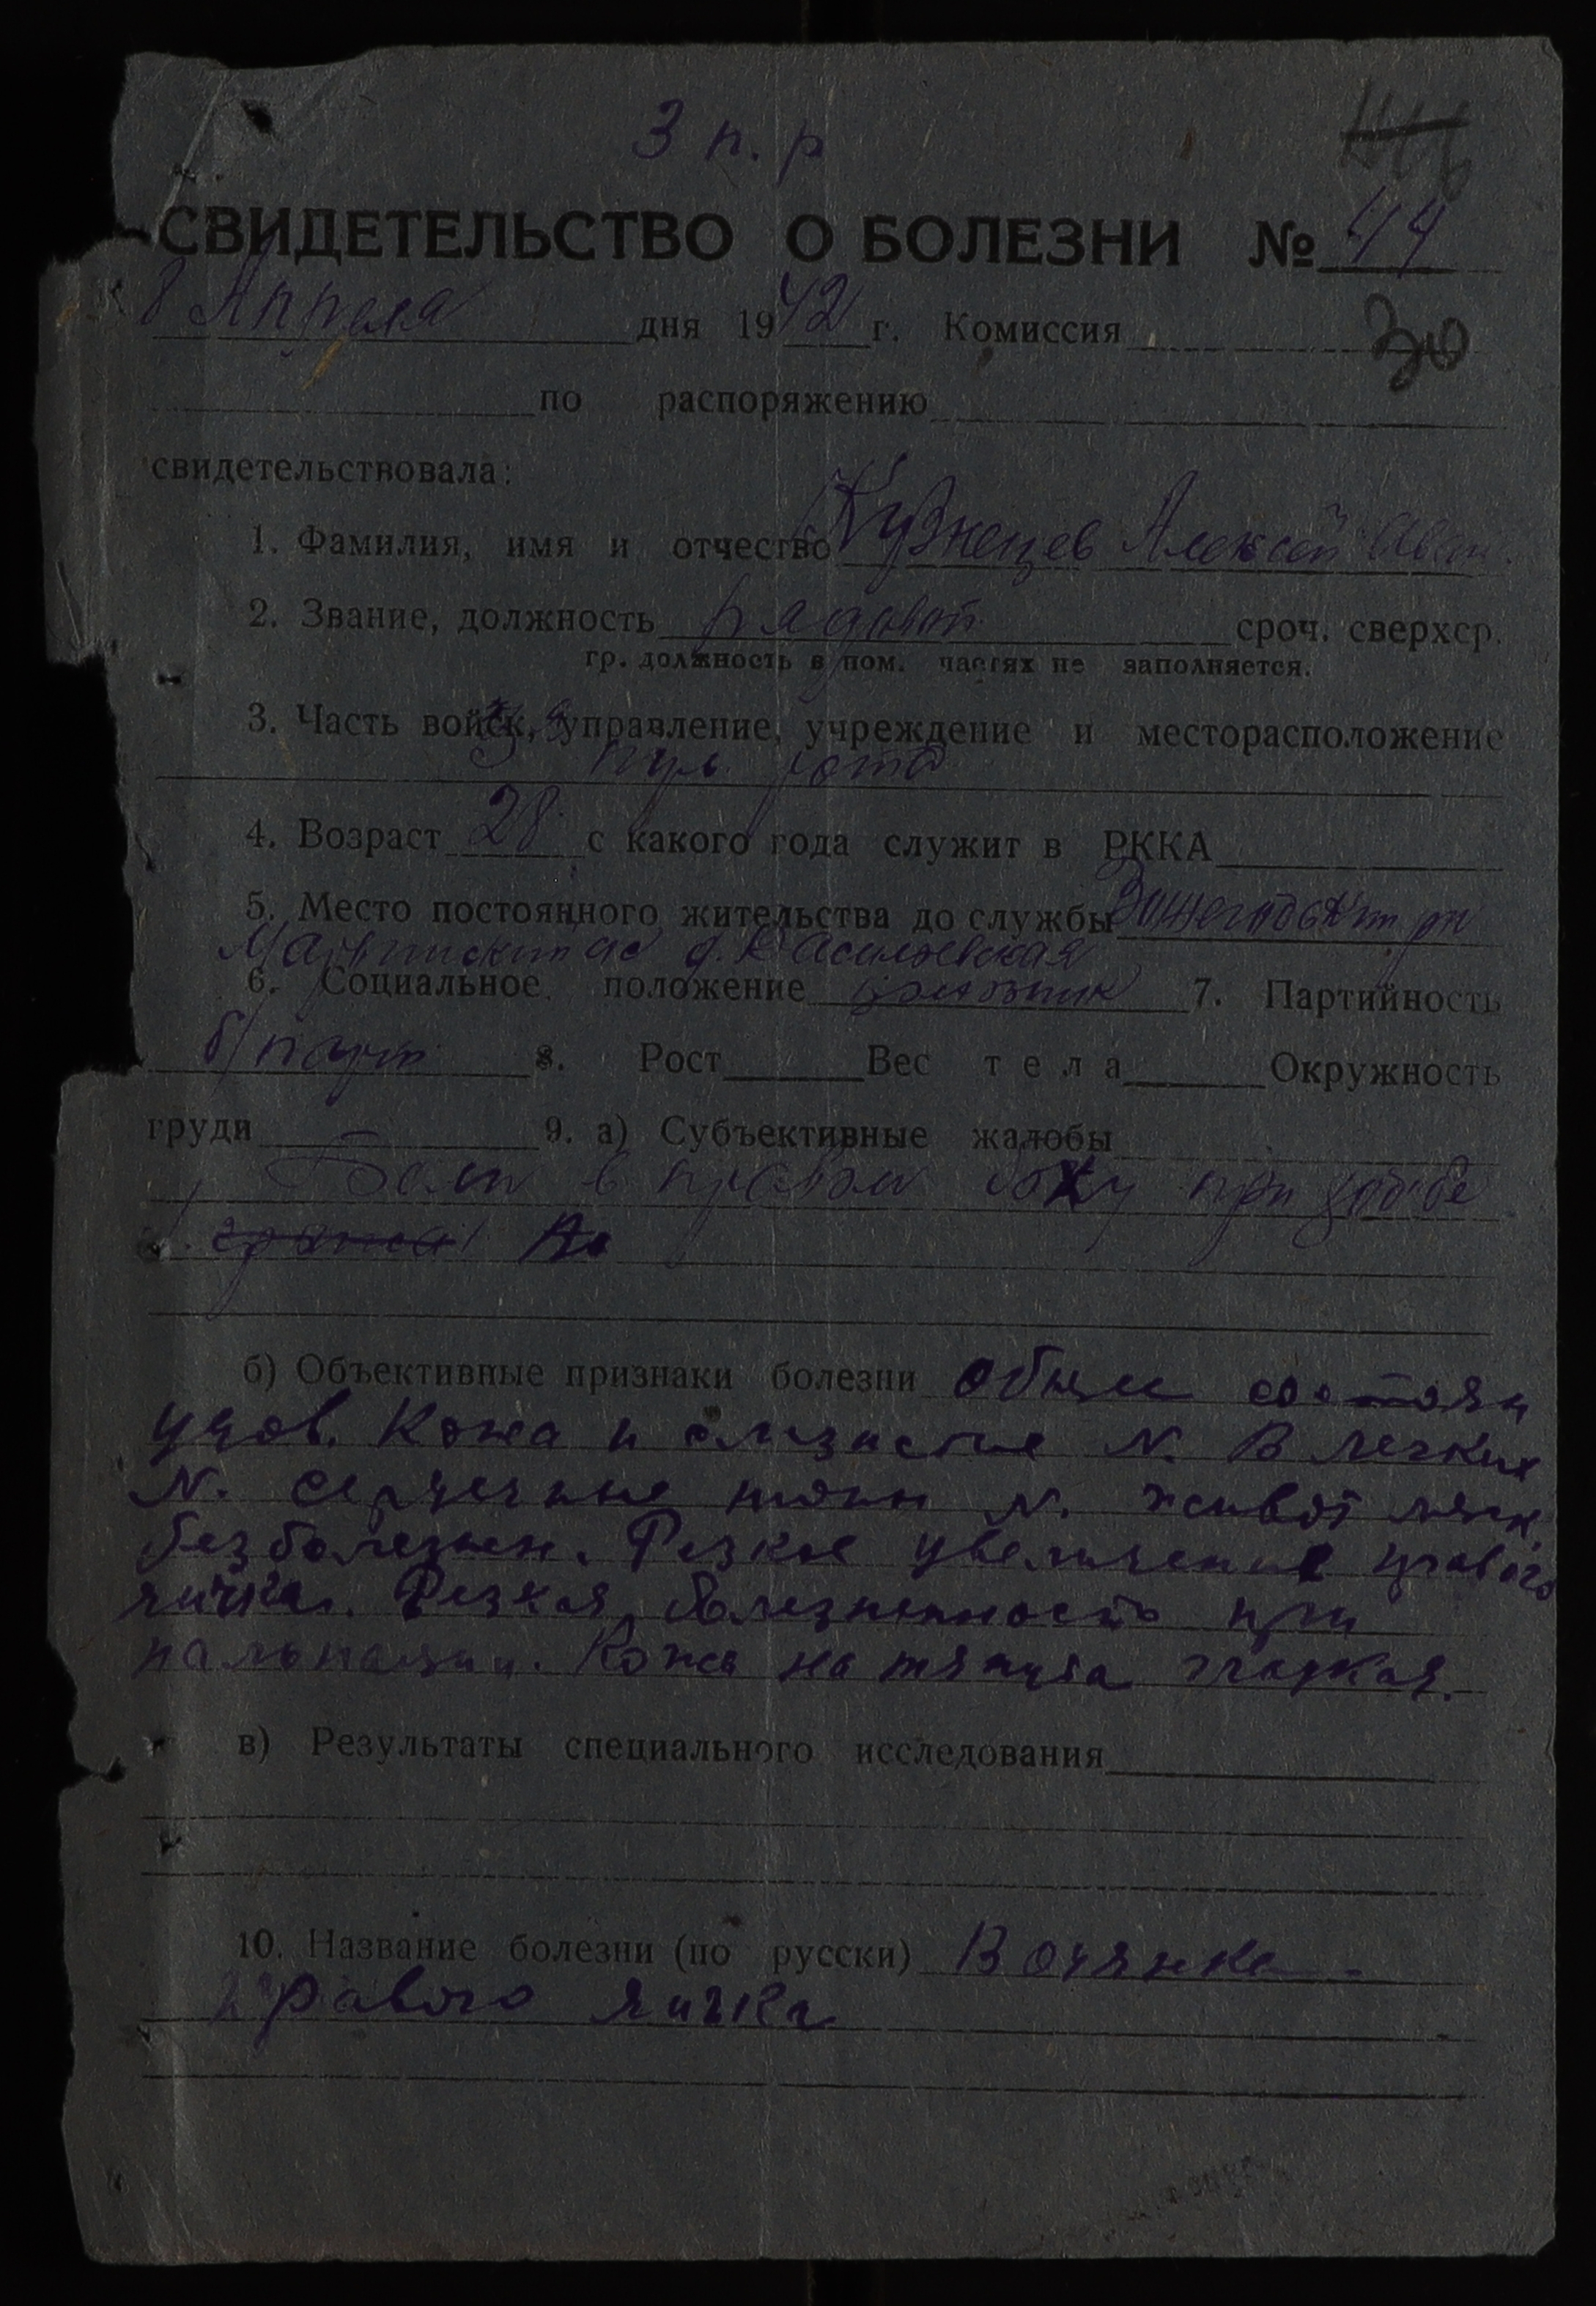 3 п. р
СВИДЕТЕЛЬСТВО О БОЛЕЗНИ № 44
30
8 Апреля дня 1942 г. Комиссия
по распоряжению
свидетельствовала:
1. Фамилия, имя и отчество Кузнецев Алексей
2. Звание, должность рядовой сроч. сверхср.
гр. должность в пом. частях не заполняется.
3. Часть войск, управление, учреждение и месторасположение
3-я пул. рота
4. Возраст 28 с какого года служит в РККА
5. Место постоянного жительства до службы
д. Васильевская
6. Социальное положение 7. Партийность
б/парт 8. Рост Вес тела Окружность
груди 9. а) Субъективные жалобы
Боли в правом боку при ходьбе
б) Объективные признаки болезни общее состоян
удов. Кожа и слизистые N. В легких
N. Сердечные тоны N. Живот мягк.
безболезнен. Резкое увеличение правого
яичка. Резкая болезненность при
пальпации. Кожа натянута гладкая.
в) Результаты специального исследования
10. Название болезни (по русски) Водянка
правого яичка